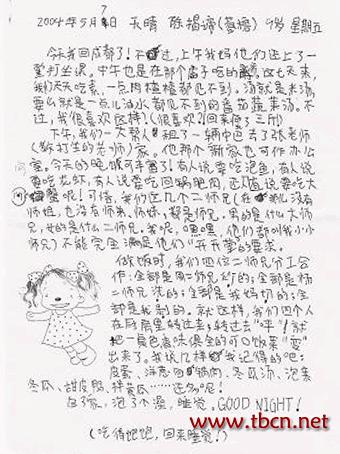 2004年5月7日 天晴 陈褐谛(菩提) 9岁 星期五
今天我回成都了！不过，上午我妈他们还上了一
堂打坐课。中午也是在那个庙子吃的斋。这七天来，
我们天天吃素，一点肉楂楂都见不到。汤就是米汤，
要么就是一点儿油水都见不到的番茄蔬菜汤。不
过，我很喜欢这样！(很喜欢？！回来便了三斤)
下午，我们一大帮人租了一辆中巴去了张老师
(教打坐的老师)家。他那个新家也可作办公
室。今天的晚饭可丰富了！有人说要吃泡鱼，有人说
要吃龙虾，有人说要吃回锅肥肉，还有人说要吃大
螃蟹呢！可惜，我们这几个二师兄(在那儿没有
师姐，也没有师弟、师妹，都是师兄。男的是什么大师
兄，女的是什么二师兄。我呢，嘿嘿，他们都叫我小小
师兄)不能完全满足他们“开开荤”的要求。
做饭时，我们四位二师兄分工合
作：全部是周二师兄炒的；全部是杨
二师兄洗的；全部是我妈切的；全
部是我剥的。就这样，我们四个人
在厨房里转过来，转过去“呼”！就
把一桌色香味俱全的可口饭菜“变”
出来了。我说几样我记得的吧：
皮蛋、洋葱回锅肉、冬瓜汤、泡菜
冬瓜、甜皮鸭、拌黄瓜……还多呢！
回了家，泡了个澡，睡觉。GOOD NIGHT！
(吃得饱饱，回来睡觉！)
www.tbcn.net